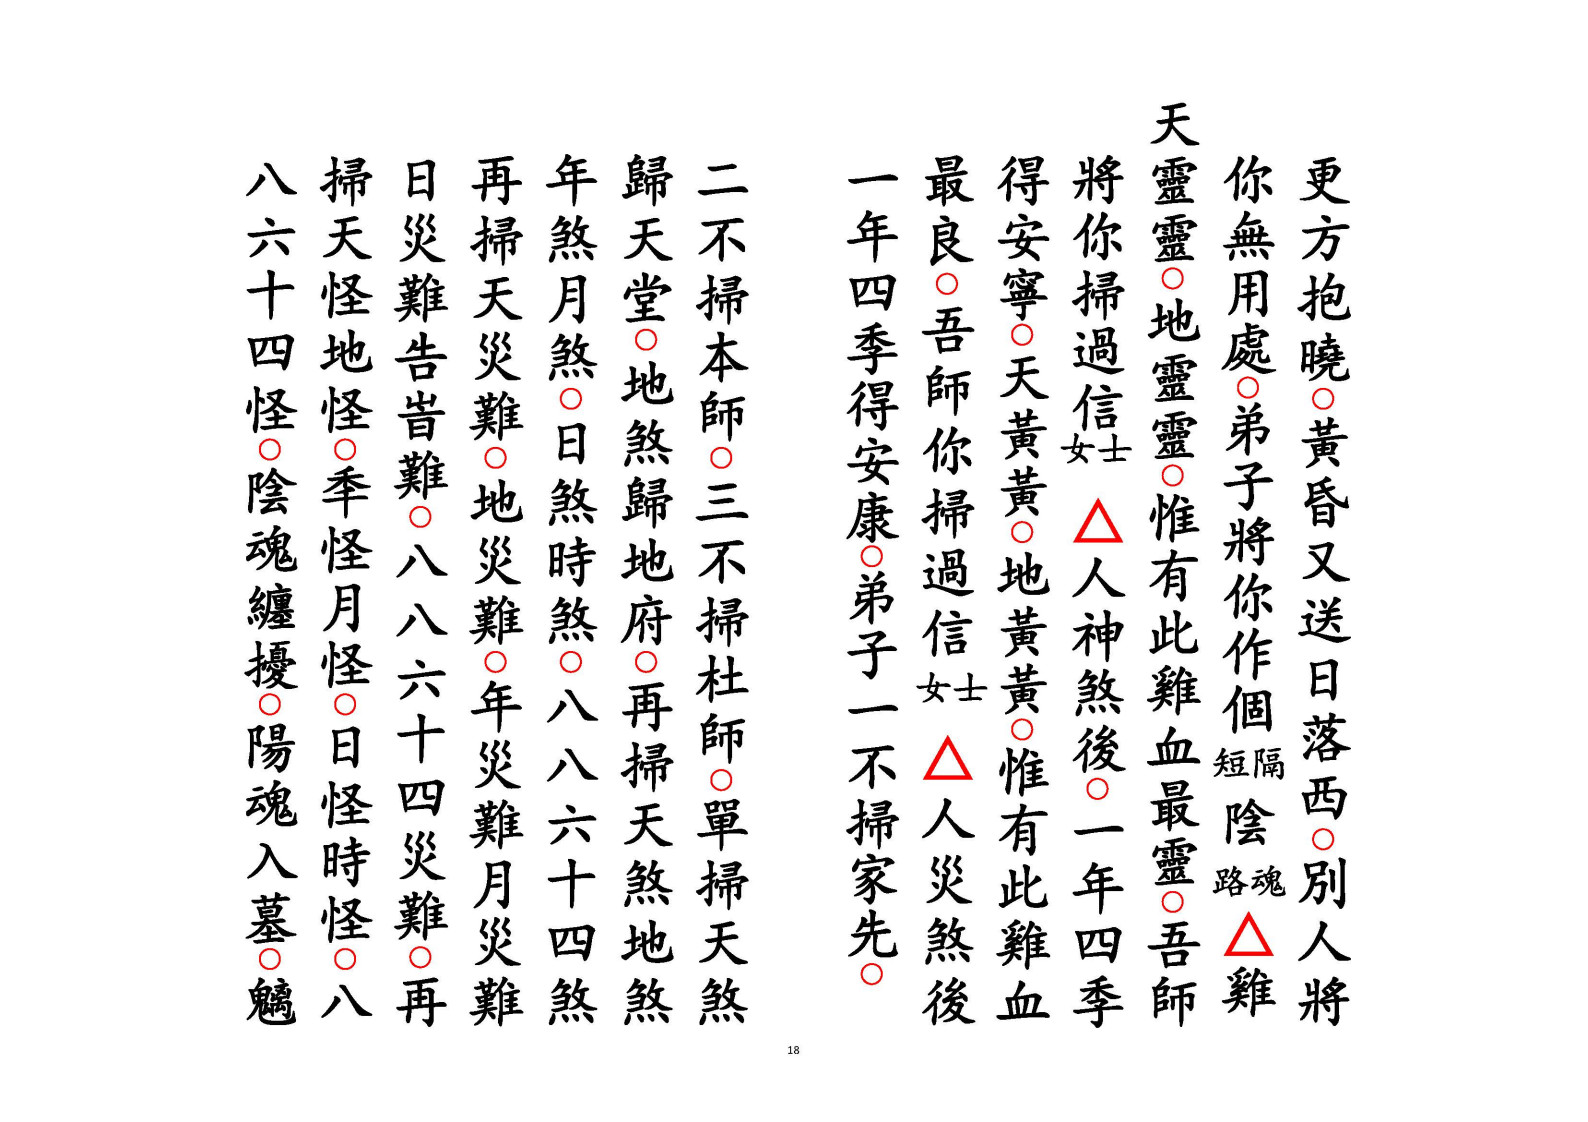 更方抱曉○黃昏又送日落西○別人將
你無用處○弟子將你作個隔短陰魂路△雞
天靈靈○地靈靈○惟有此雞血最靈○吾師
將你掃過信士女△人神煞後○一年四季
得安寧○天黃黃○地黃黃○惟有此雞血
最良○吾師你掃過信士女△人災煞後
一年四季得安康○弟子一不掃家先○
二不掃本師○三不掃杜師○單掃天煞
歸天堂○地煞歸地府○再掃天煞地煞
年煞月煞○日煞時煞○八八六十四煞
再掃天災難○地災難○年災難月災難
日災難告旹難○八八六十四災難○再
掃天怪地怪○秊怪月怪○日怪時怪○八
八六十四怪○陰魂纏擾○陽魂入墓○魑
18